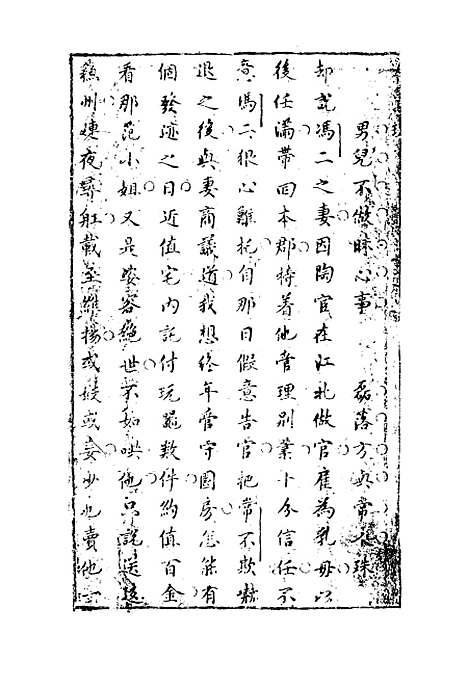 男兒不做昧心事　磊落方與常人殊
却說馮二之妻因陶官在江北做官雇為乳母以
後任滿帶回本郡將着他管理別業十分信任不
意馮二狠心難托自那日假意告官把常不欺嚇
退之後與妻商議道我想終年管守園房怎能有
個發迹之日近值宅內託付玩器數件約值百金
看那范小姐又是姿容絕世不如哄他只說送該
蘇州連夜尋舡載至維揚或妓或妾少也賣他